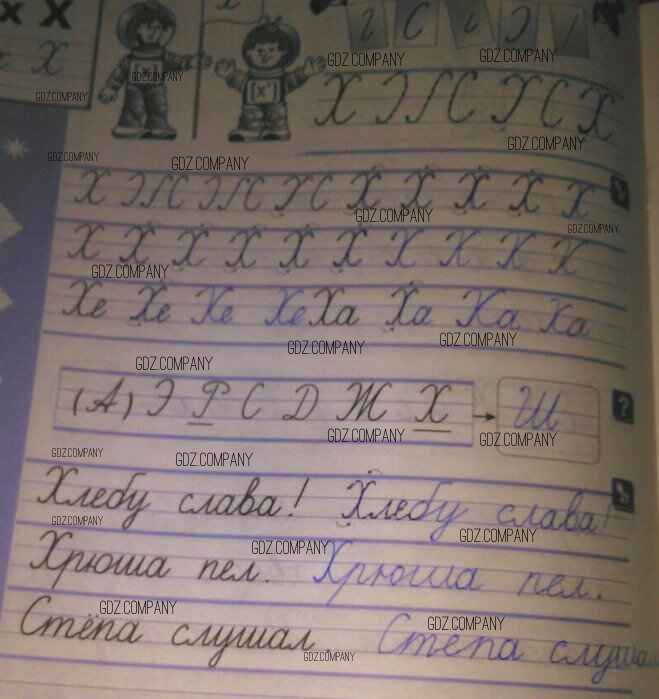 х Х
Х
[х]
[х']
Х Э/С У С Х
Х Э/С Э/С У С Х Х Х Х Х
Х Х Х Х Х Х Х Х Х Х
Хе Хе Хе Хе Ха Ха Ха Ха
(А) Э Р С Д Ж Х → Ш
Хлебу слава! Хлебу слава!
Хрюша пел. Хрюша пел.
Стёпа слушал. Стёпа слушал
GDZ.COMPANY